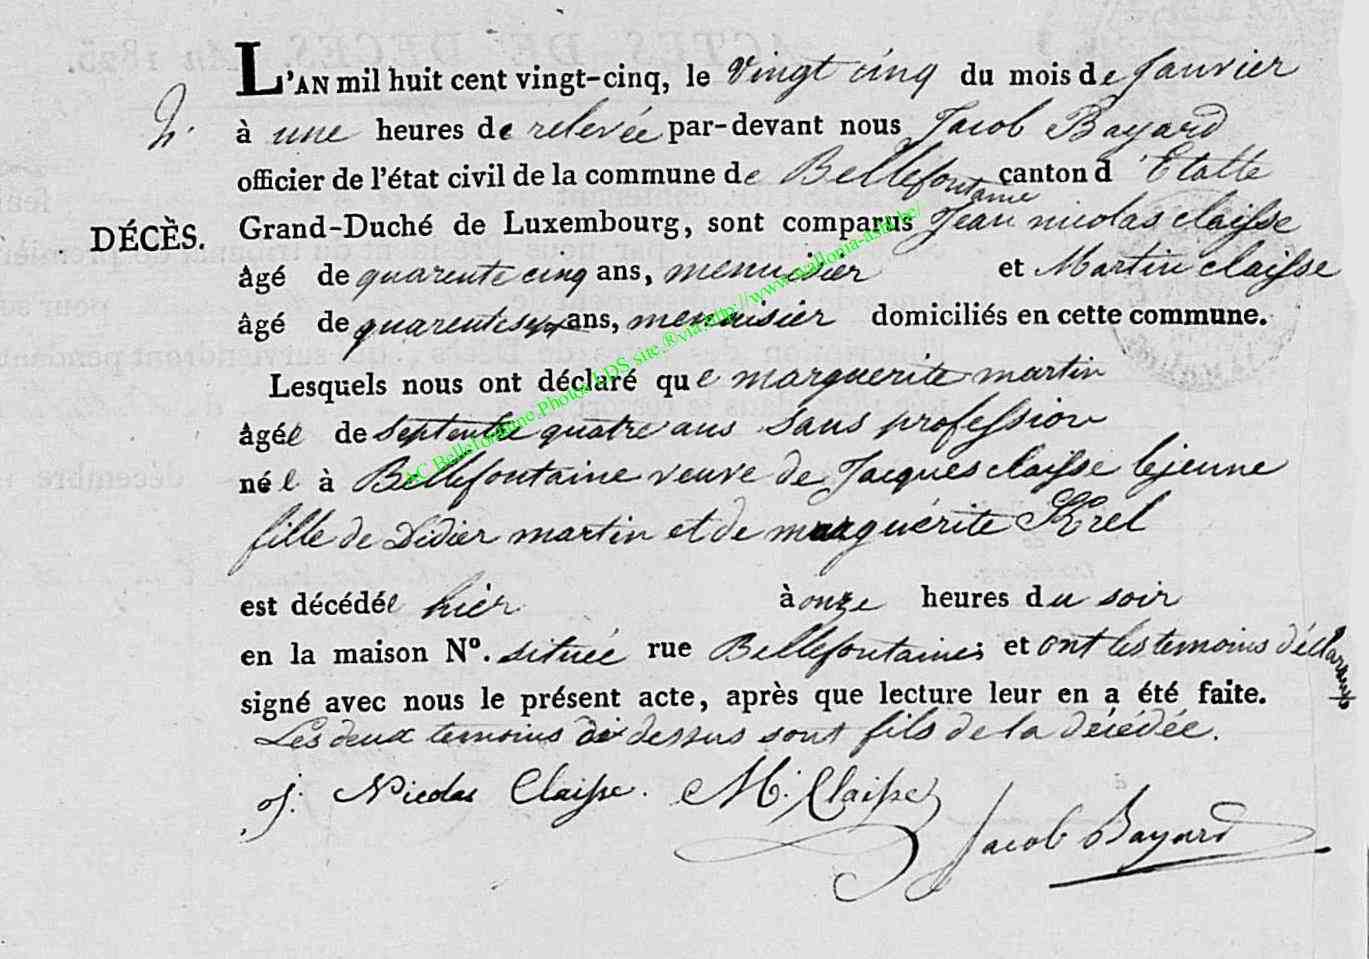 L'AN mil huit cent vingt-cinq, le vingt cinq du mois de Janvier
à une heures de relevée par-devant nous Jacob Bayard
officier de l'état civil de la commune de Bellefontaine canton d'Etalle
DÉCÈS. Grand-Duché de Luxembourg, sont comparus Jean nicolas claisse
âgé de quarente cinq ans, menuisier et Martin claisse
âgé de quarente sept ans, menuisier domiciliés en cette commune.
Lesquels nous ont déclaré que marguerite martin
âgée de septente quatre ans sans profession
née à Bellefontaine veuve de Jacques claisse lejeune
fille de Didier martin et de marguérite Krel
est décédée hier à onze heures du soir
en la maison N°. située rue Bellefontaine et ont les temoins déclarants
signé avec nous le présent acte, après que lecture leur en a été faite.
Les deux temoins di dessus sont fils de la décédée.
J. Nicolas Claisse. M. Claisse
Jacob Bayard
AC.Bellefontaine.Photos LDS site.®via.http://www.wallonia-asbl.be/